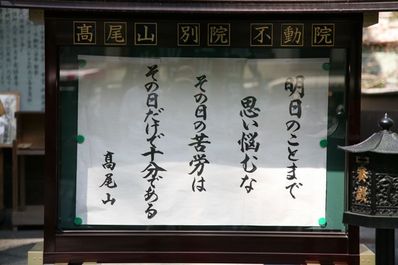 髙尾山 別院 不動院
明日のことまで
思い悩むな
その日の苦労は
その日だけで十分である
髙尾山